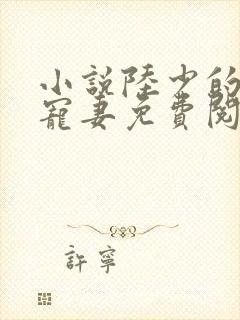 小說陸少的
寵妻免費閱
許寧